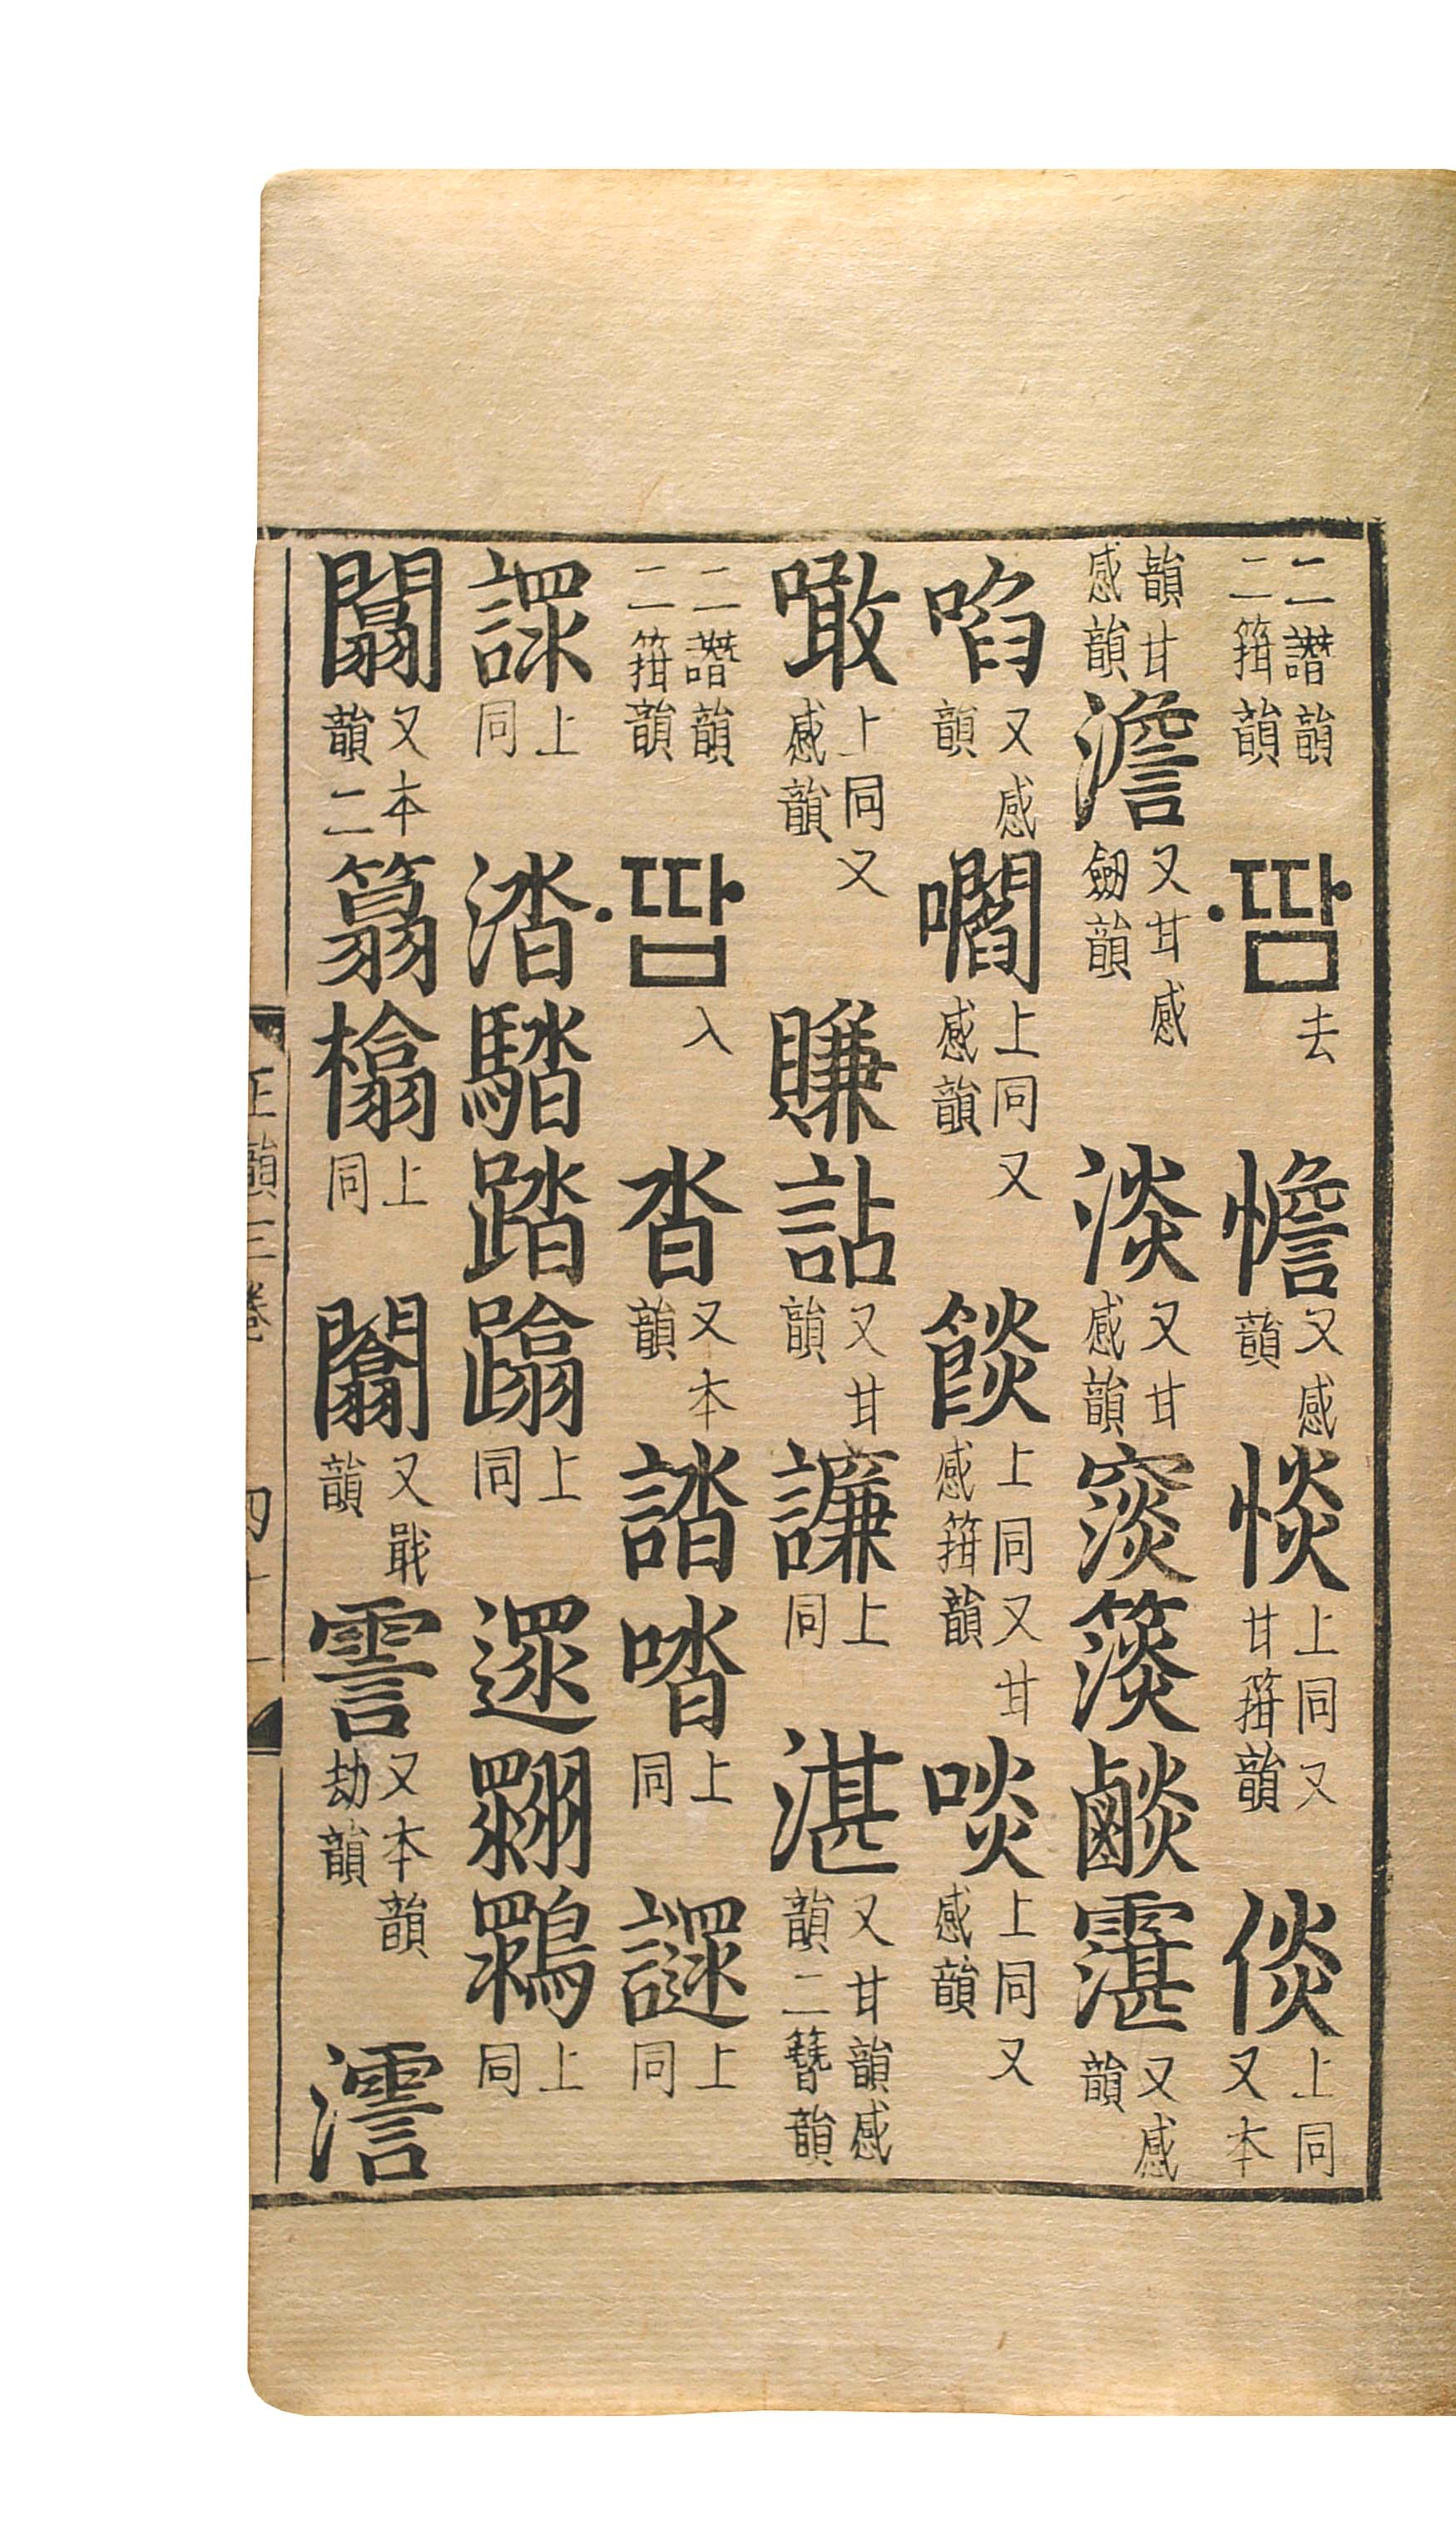 二譖韻二箝韻 ·땀 去 憺 又感韻 惔 上同又甘箝韻 倓 上同又本
韻甘感韻 澹 又甘感劒韻 淡 又甘感韻 霮 又感韻
啗 又感韻 嚪 上同又感韻 餤 上同又甘感箝韻 啖 上同又感韻
噉 上同又感韻 賺 詀 又甘韻 譧 上同 湛 又甘韻感韻二簪韻
二譖韻二箝韻 ·땁 入 沓 又本韻 誻 㗳 上同 上同
上同 涾 踏 蹹 上同 遝 上同
闒 又本韻二 上同 闟 又戢韻 霅 又本韻劫韻
正韻三卷 四十一